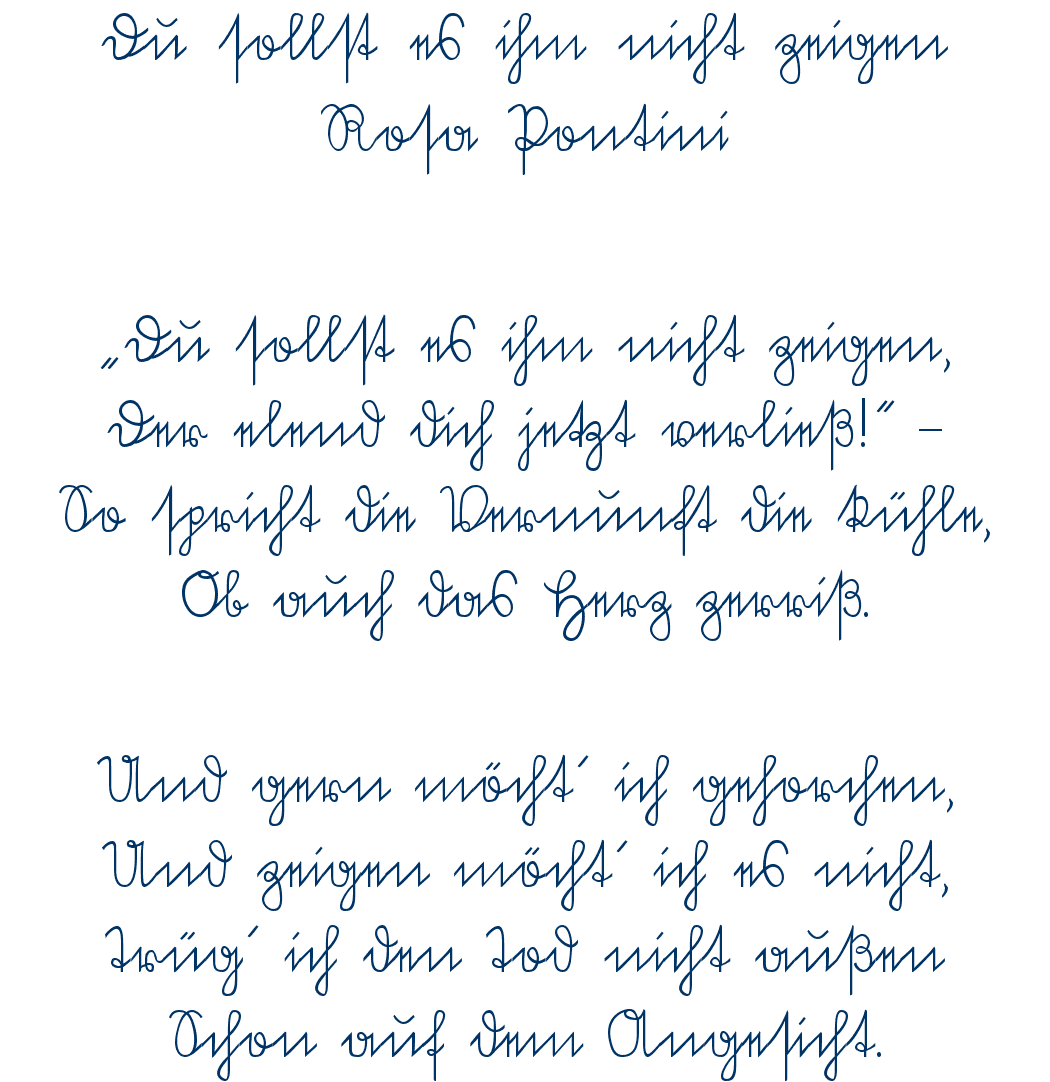 Du sollst es ihm nicht zeigen
Rosa Pontini
„Du sollst es ihm nicht zeigen,
Der elend dich jetzt verließ!“ –
So spricht die Vernunft die kühle,
Ob auch das Herz zerriß.
Und gern möcht´ ich gehorchen,
Und zeigen möcht´ ich es nicht,
Trüg´ ich den Tod nicht außen
Schon auf dem Angesicht.